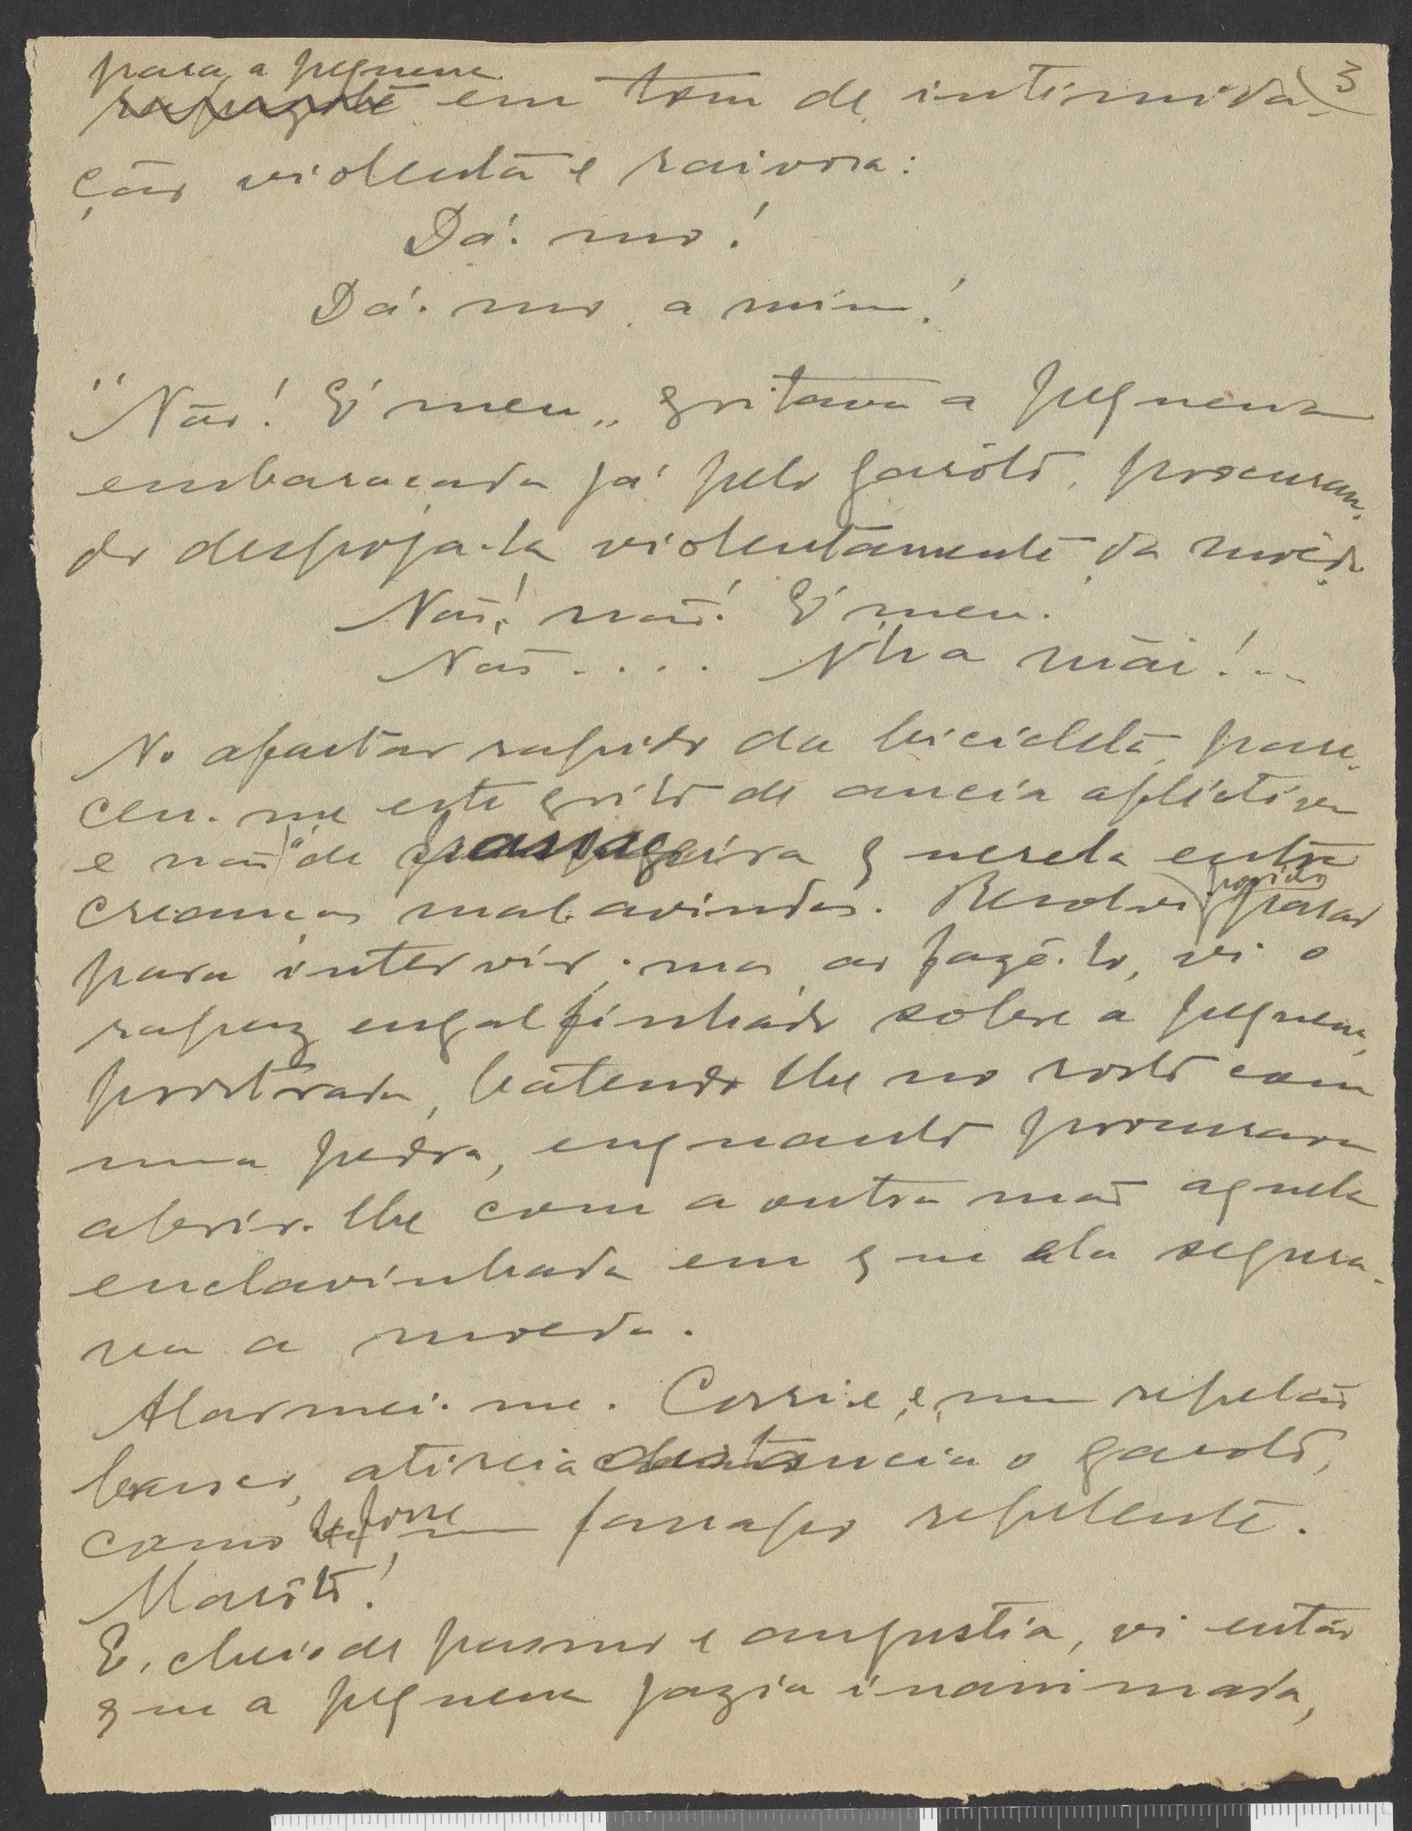 3
para a pequena
rapazote em tom de intimida-
ção violenta e raivosa:
Dá-mo!
Dá-mo a mim!
"Não! É meu" gritava a pequena
embaraçada já pelo garôto, procuran-
do despoja-la violentamente da moêda
Não! não! É meu.
Não.... Nha mãi!...
No afastar rapido da bicicleta, pare-
ceu-me este grito de ancia aflictiva
e não de passageira querela entre
creanças mal-avindas. Resolvi rapido parar
para intervir; mas ao fazê-lo, vi o
rapaz engalfinhado sobre a pequena,
prostrada, batendo lhe no rosto com
uma pedra, enquanto procurava
abrir-lhe com a outra mão aquela
enclavinhada em que ela segura-
va a moeda.
Alarmei-me. Corri e, num repelão
brusco, atirei a distancia o garoto,
como se fosse um farrapo repelente.
Marôto!
E, cheio de pasmo e angustia, vi então
que a pequena jazia inanimada,